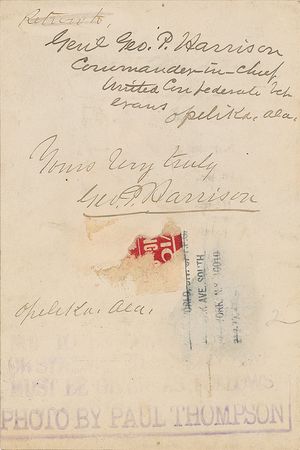 Return to
Genl Geo. P. Harrison
Commander-in-Chief
United Confederate Vet-
erans
Opelika, Ala.
Yours Very truly
Geo. P. Harrison
Opelika, Ala.
AVE. SOUTH
2
MUST BE
PHOTO BY PAUL THOMPSON